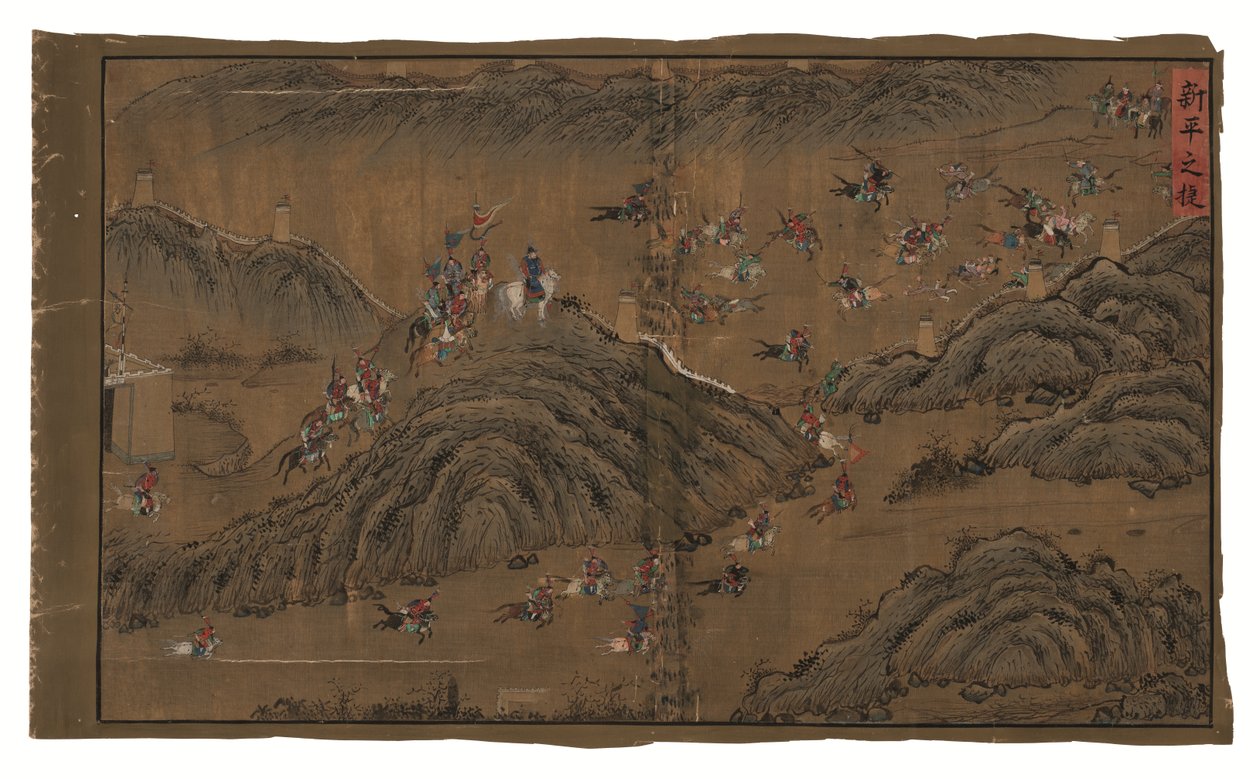 新平之捷